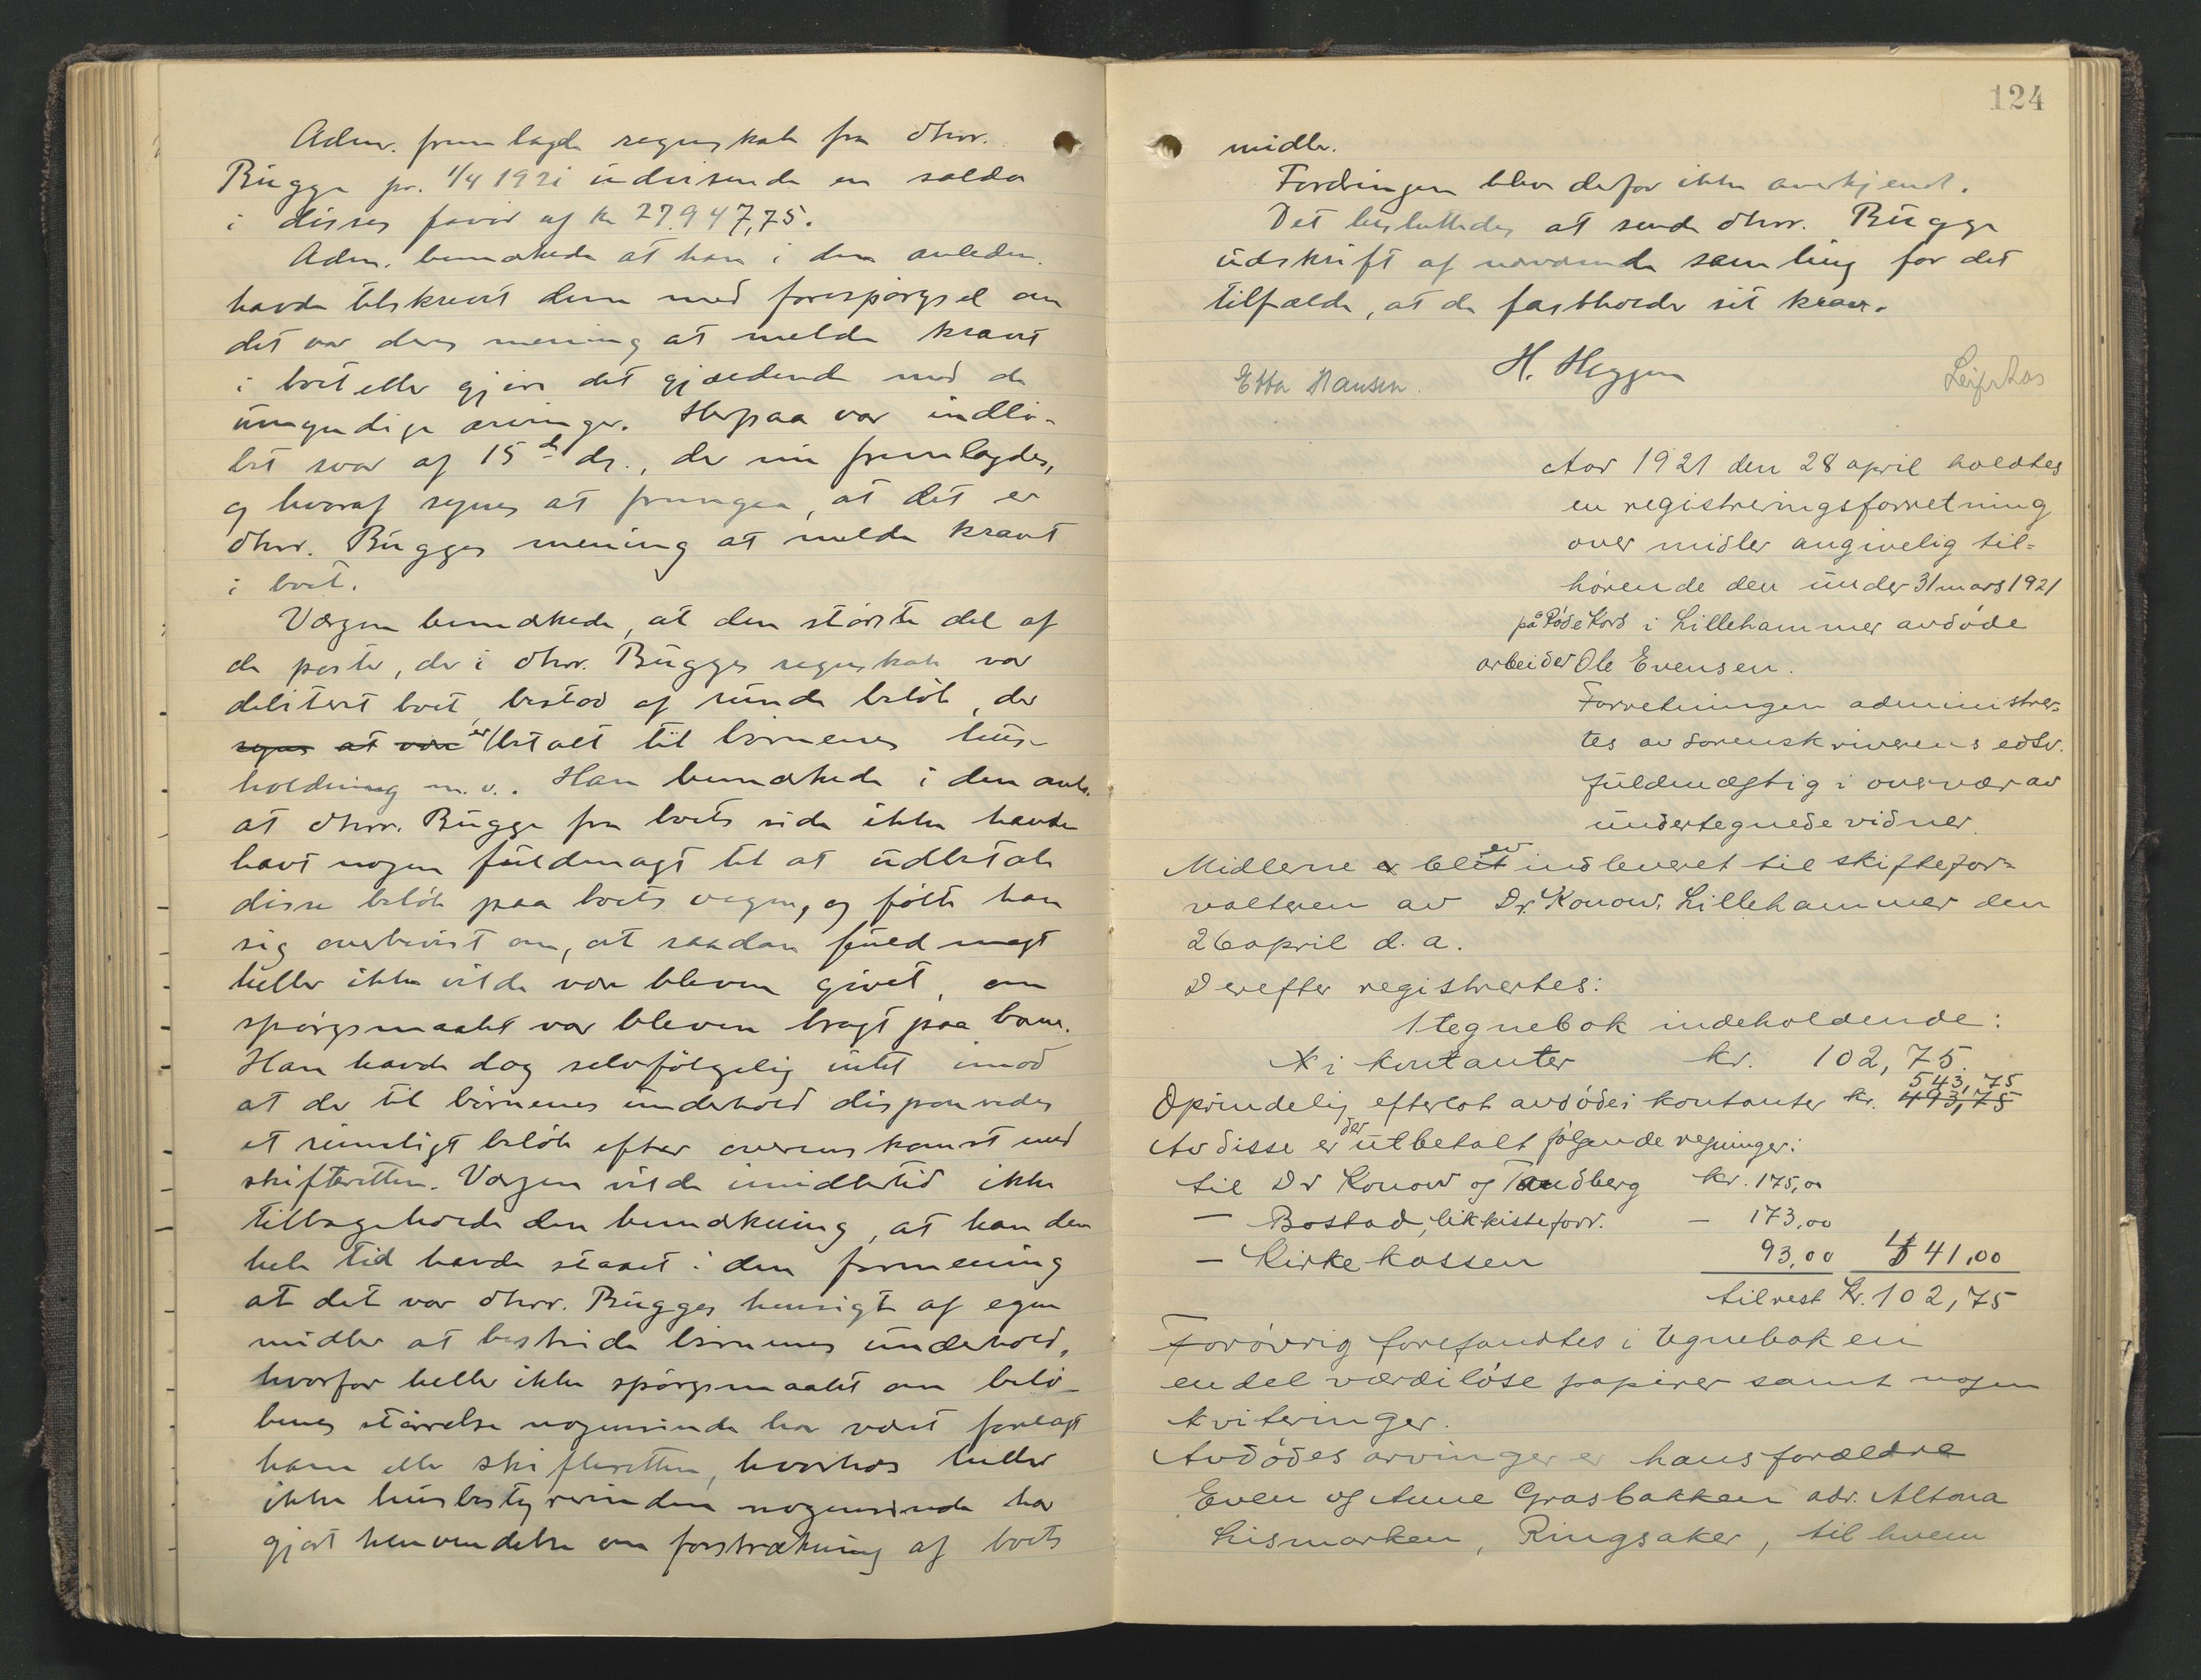 Adm. fremlagde regnskab fra dhrr.
Bugge pr. 1/4 1921 udvisende en saldo
i disses favør af kr 27.947,75.
Adm. bemærkede at han i den anledn.
havde tilskrevet dem med forespørgsel om
det var deres mening at melde kravet
i boet eller gjøre det gjældende mod de
umyndige arvinger. Herpaa var indlø-
bet svar af 15 ds., der nu fremlagdes,
og hvoraf synes at fremgaa, at det er
dhrr. Bugges mening at melde kravet
i boet.
Værgen bemærkede, at den største del af
de poster, der i dhrr. Bugges regnskab var
debitert boet, bestod af runde beløb, der
synes at være er betalt til børnenes hus-
holdning m. v.. Han bemærkede i den anl.
at dhrr. Bugge fra boets side ikke havde
havt nogen fuldmagt til at udbetale
disse beløb paa boets vegne, og følte han
sig overbevist om, at saadan fuldmagt
heller ikke vilde være bleven givet, om
spørgsmaalet var bleven bragt paa bane.
Han havde dog selvfølgelig intet imod
at der til børnenes underhold disponeredes
et rimeligt beløb efter overenskomst med
skifteretten. Værgen vilde imidlertid ikke
tilbageholde den bemærkning, at han den
hele tid havde staaet i den formening
at det var dhrr. Bugges hensigt af egne
midler at bestride børnenes underhold,
hvorfor heller ikke spørgsmaalet om belø-
benes størrelse nogensinde har været forelagt
ham eller skifteretten, hvorhos heller
ikke husbestyrerinden nogensinde har
gjort henvendelse om forstrækning af boets
124
midler.
Fordringen blev derfor ikke anerkjendt.
Det besluttedes at sende dhrr. Bugge
udskrift af nærværende samling for det
tilfælde, at de fastholder sit krav.
Ebba Hansen. H. Heggen Leif Aas
Aar 1921 den 28 april holdtes
en registreringsforretning
over midler angivelig til=
hørende den under 31 mars 1921
på Røde Kors i Lillehammer avdøde
arbeider Ole Evensen.
Forretningen administrer=
tes av sorenskriverens edsv.
fuldmægtig i overvær av
undertegnede vidner.
Midlerne er blev indleveret til skiftefor=
valteren av Dr. Konow, Lillehammer den
26 april d. a.
Derefter registrertes:
1 tegnebok indeholdende:
i kontanter kr. 102,75.
543,75
Oprindelig efterlot avdøde i kontanter kr. 493,75
Av disse er der utbetalt følgende regninger:
til Dr Konow og Tandberg kr. 175,00
— Bostad, likkisteforr. — 173,00
— Kirkekassen 93,00 441,00
til rest kr. 102,75
Forøvrig forefandtes i tegneboken
endel værdiløse papirer samt nogen
kviteringer.
Avdødes arvinger er hans forældre
Even og Anne Grasbakken adr. Altona
Lismarken, Ringsaker, til hvem